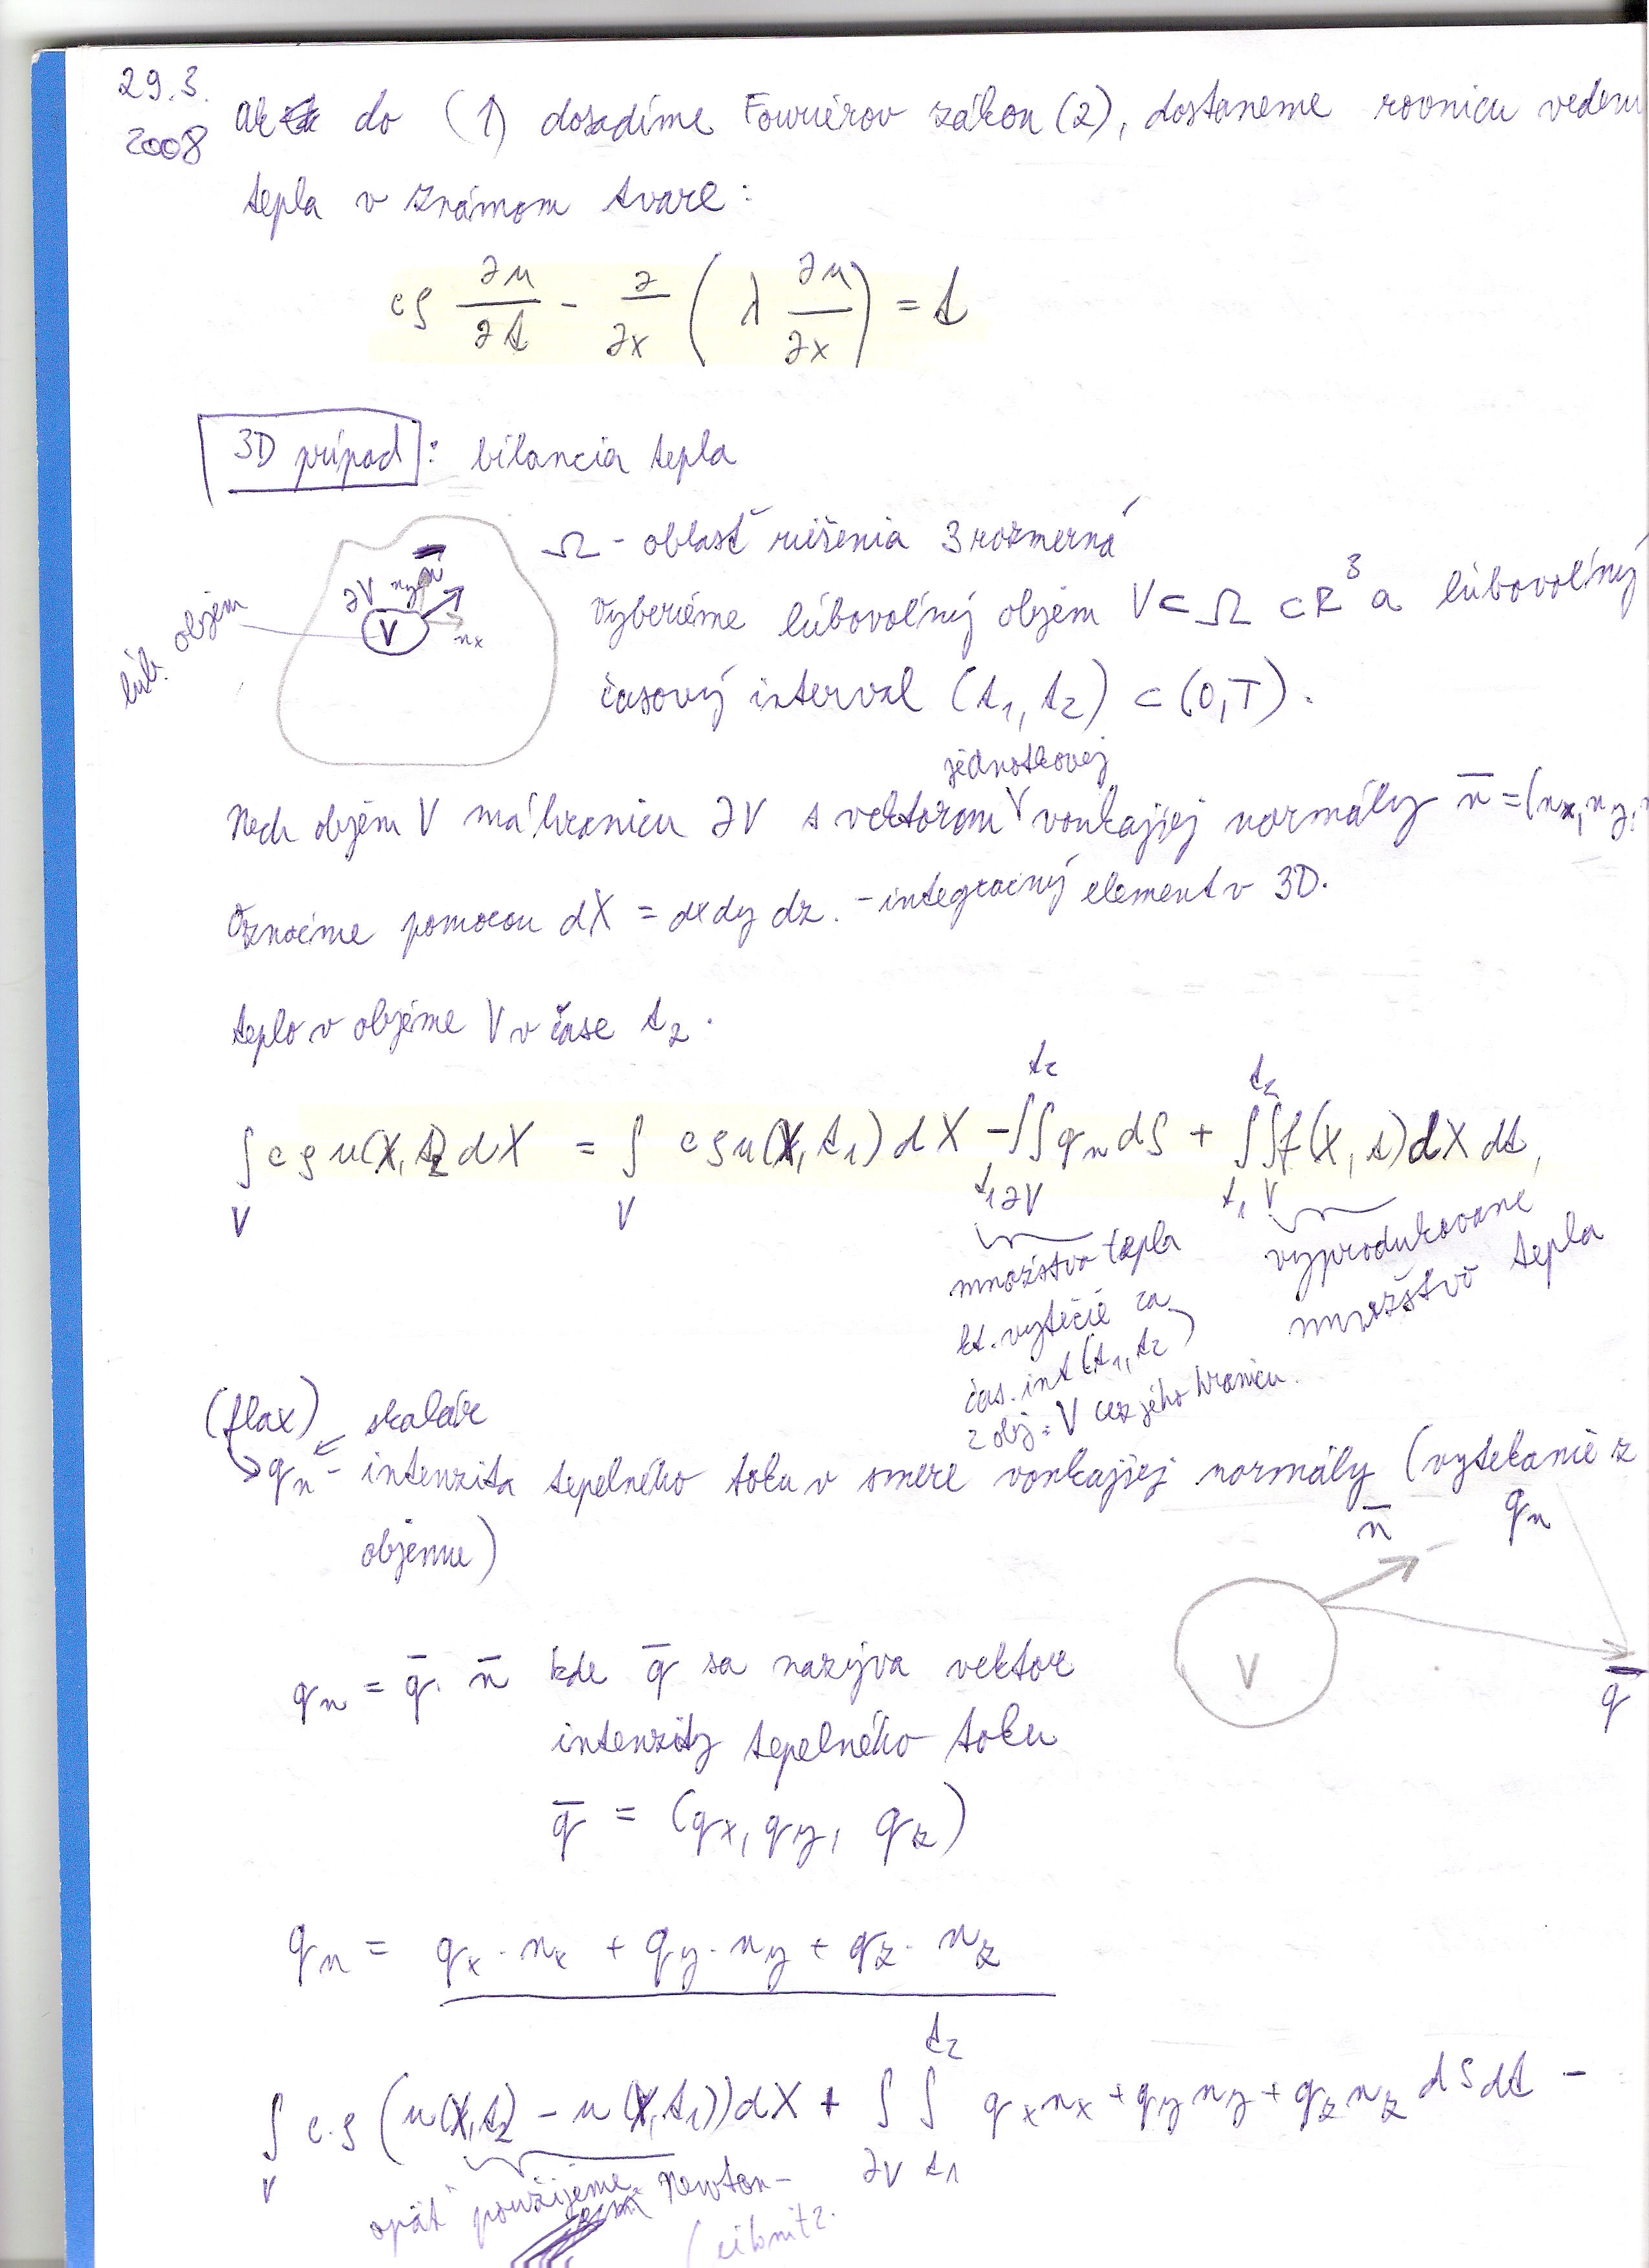 29.3.
2008
Ak do (1) dosadíme Fouriérov zákon (2), dostaneme rovnicu veden
tepla v známom tvare:
cρ ∂u/∂t - ∂/∂x ( λ ∂u/∂x ) = f
3D prípad : bilancia tepla
Ω - oblasť riešenia 3rozmerná
Vyberieme ľúbovoľný objem V ⊂ Ω ⊂ R³ a ľúbovoľný
časový interval (t₁, t₂) ⊂ (0,T).
ľub. objem
∂V
n̄
V
nx
jednotkovej
Nech objem V má hranicu ∂V s vektorom vonkajšej normály n̄ = (nx, ny,
Označme pomocou dX = dx dy dz. - integračný element v 3D.
teplo v objeme V v čase t₂.
∫_V cρu(X,t₂)dX = ∫_V cρu(X,t₁)dX - ∫_t₁^t₂ ∫_∂V qn dS + ∫_t₁^t₂ ∫_V f(X,t)dX dt,
množstvo tepla
kt. vytečie za
čas. int (t₁,t₂)
z obj. V cez jeho hranicu.
vyprodukované
množstvo tepla
(flax) skalár
qn - intenzita tepelného toku v smere vonkajšej normály (vytekanie z
objemu)
n̄
qn
V
q̄
qn = q̄ . n̄ kde q̄ sa nazýva vektor
intenzity tepelného toku
q̄ = (qx, qy, qz)
qn = qx · nx + qy · ny + qz · nz
∫_V c.ρ (u(X,t₂) - u(X,t₁))dX + ∫_∂V ∫_t₁^t₂ qx nx + qy ny + qz nz dS dt -
opäť použijeme Newton-
Leibnitz.